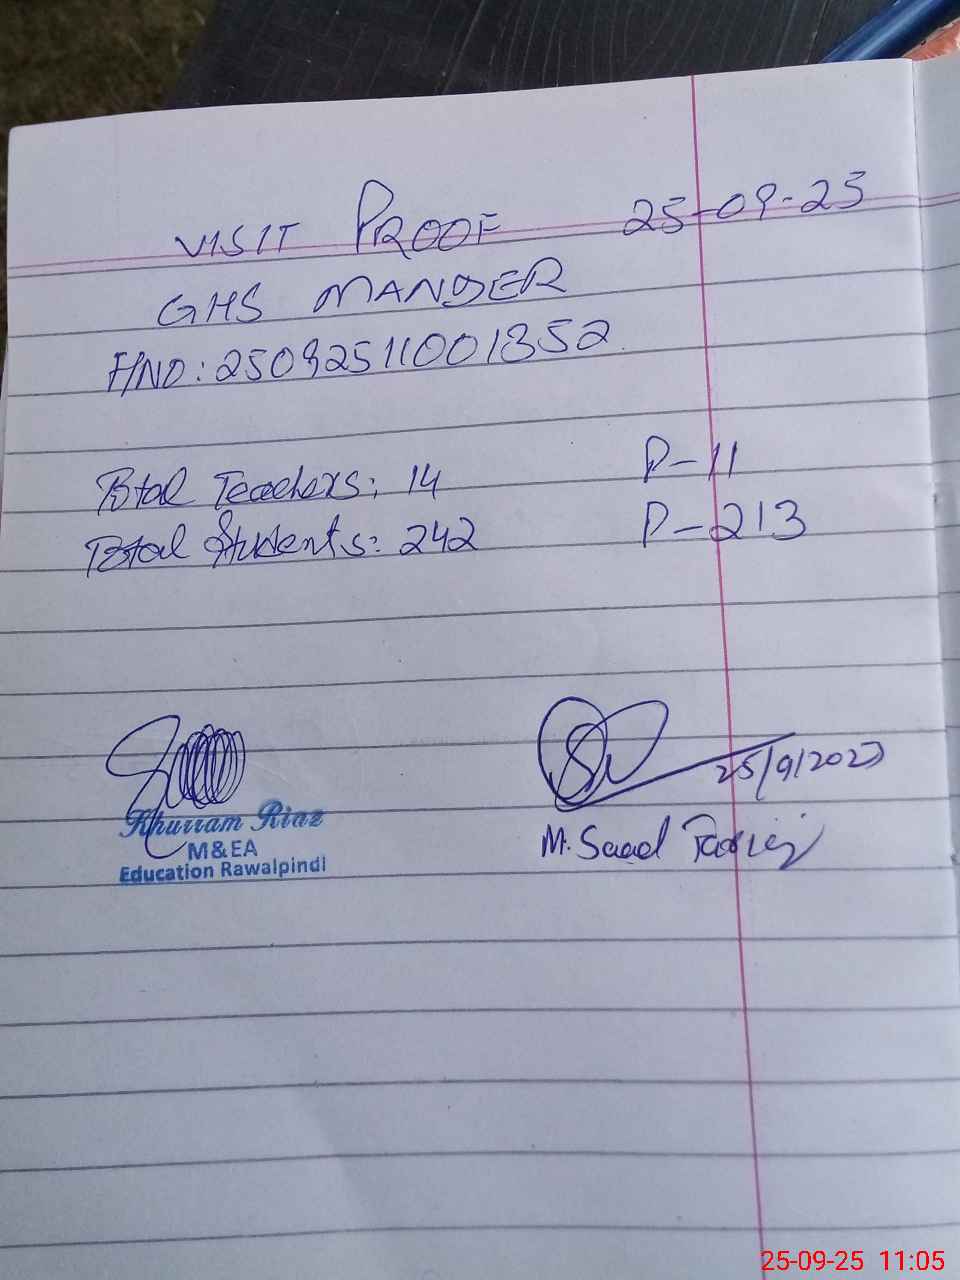 VISIT PROOF 25-09-25
GHS MANDER
HNO: 25092511001352
Total Teachers: 14 P-11
Total Students: 242 P-213
25/9/2025
Khurram Riaz
M&EA
Education Rawalpindi
M. Saad Tariq
25-09-25 11:05